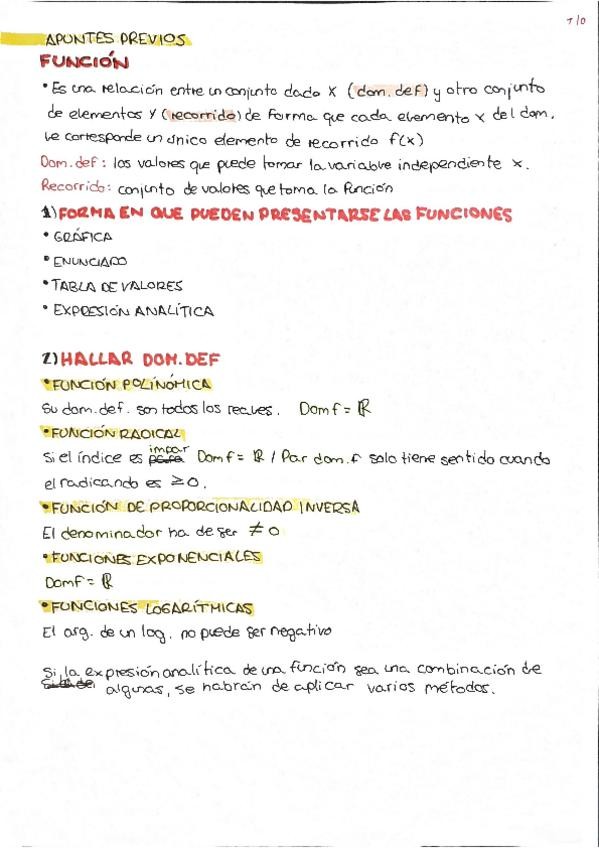 1/0
APUNTES PREVIOS
FUNCIÓN
• Es una relación entre un conjunto dado X (dom. def) y otro conjunto
de elementos Y (recorrido) de forma que cada elemento x del dom.
le corresponde un único elemento de recorrido f(x)
Dom. def: los valores que puede tomar la variable independiente x.
Recorrido: conjunto de valores que toma la función
1) FORMA EN QUE PUEDEN PRESENTARSE LAS FUNCIONES
• GRÁFICA
• ENUNCIADO
• TABLA DE VALORES
• EXPRESIÓN ANALÍTICA
2) HALLAR DOM. DEF
• FUNCIÓN POLINÓMICA
Su dom. def. son todos los reales. Dom f = ℝ
• FUNCIÓN RADICAL
Si el índice es impar Dom f = ℝ / Par dom. f solo tiene sentido cuando
el radicando es ≥ 0.
• FUNCIÓN DE PROPORCIONALIDAD INVERSA
El denominador ha de ser ≠ 0
• FUNCIONES EXPONENCIALES
Dom f = ℝ
• FUNCIONES LOGARÍTMICAS
El arg. de un log. no puede ser negativo
Si la expresión analítica de una función sea una combinación de
algunas, se habrán de aplicar varios métodos.